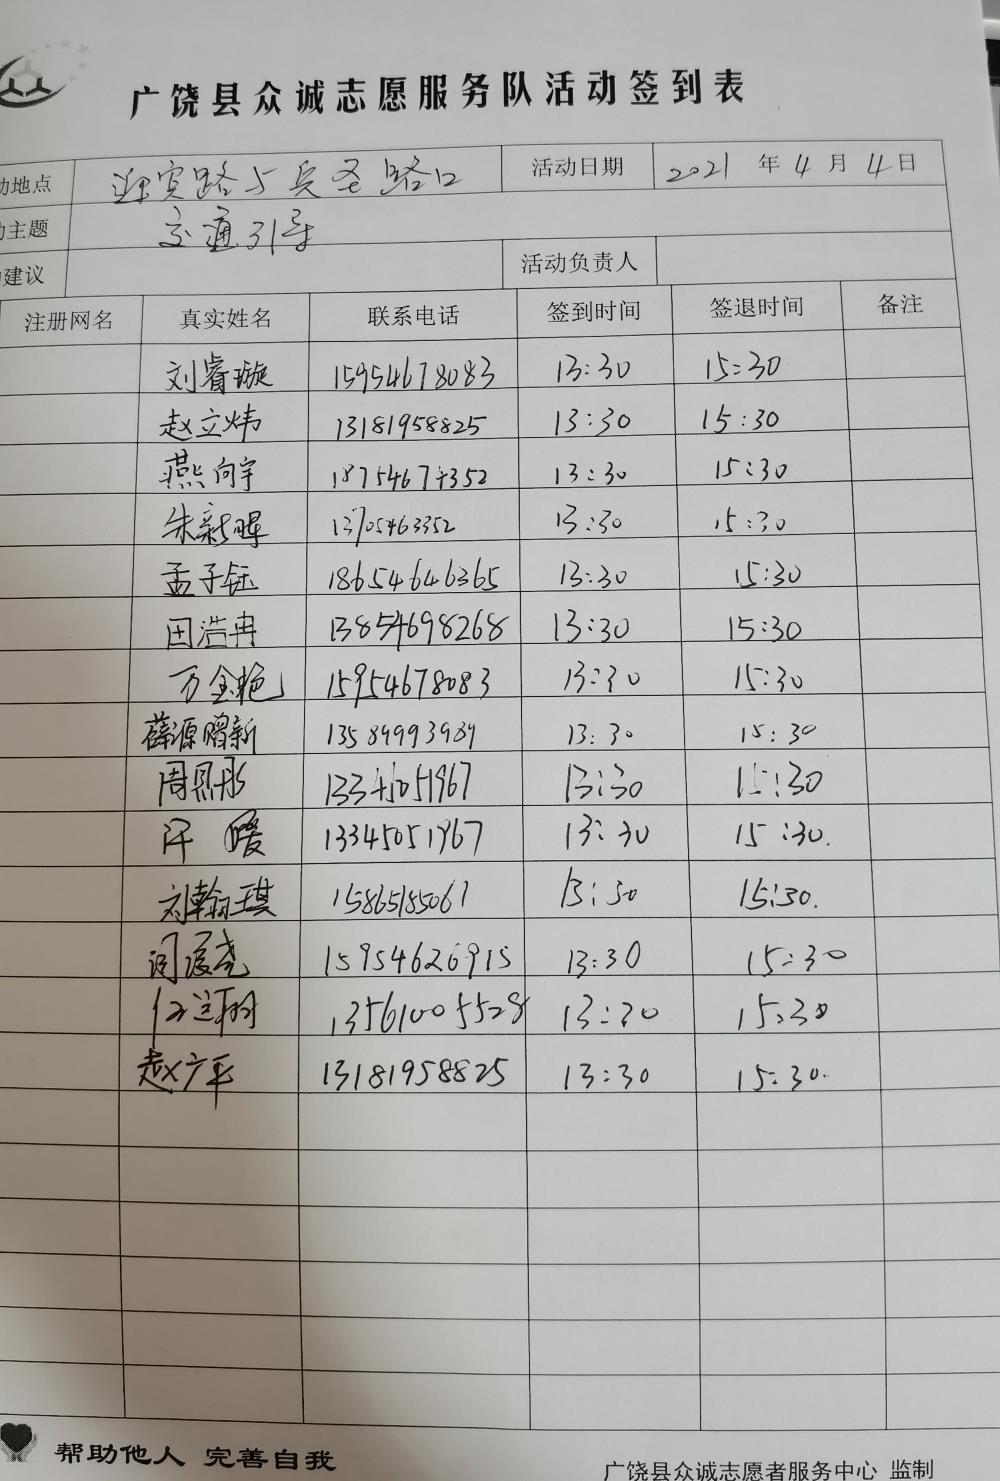 广饶县众诚志愿服务队活动签到表
动地点 迎宾路与兵圣路口 活动日期 2021 年 4 月 4 日
主题 交通引导
建议 活动负责人
注册网名 真实姓名 联系电话 签到时间 签退时间 备注
刘睿璇 15954678083 13:30 15:30
赵立炜 13181958825 13:30 15:30
燕向宇 18754677352 13:30 15:30
朱新晖 13705463352 13:30 15:30
孟子钰 18654646365 13:30 15:30
田浩冉 13854698268 13:30 15:30
万金艳 15954678083 13:30 15:30
薛源赠新 13589993989 13:30 15:30
周 13345051967 13:30 15:30
暖 13345051967 13:30 15:30.
刘翰琪 15865185061 13:30 15:30.
15954626915 13:30 15:30
13561005528 13:30 15:30
赵广平 13181958825 13:30 15:30.
帮助他人 完善自我
广饶县众诚志愿者服务中心 监制